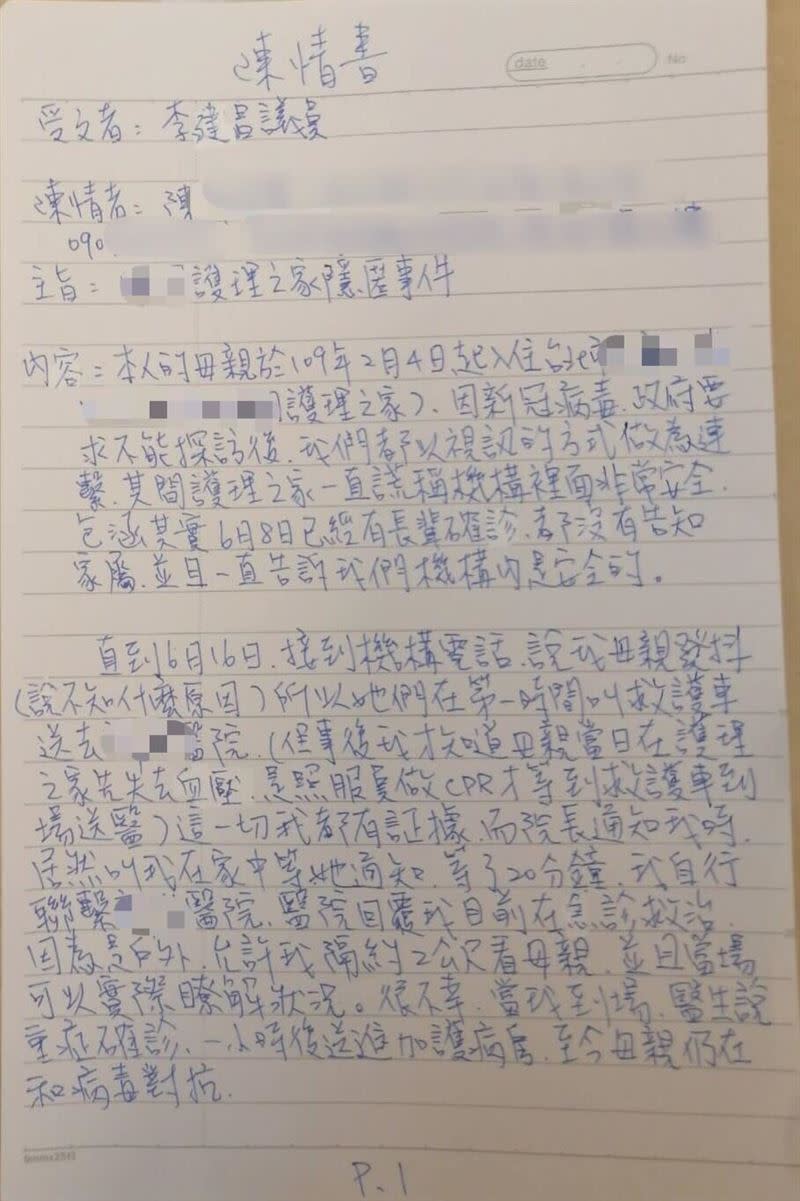 陳情書
date No
受文者：李建昌議員
陳情者：陳
090
主旨： 護理之家隱匿事件
內容：本人的母親於109年2月4日起入住台北市
護理之家）、因新冠病毒、政府要
求不能探訪後、我們都以視訊的方式做為連
繫、其間護理之家一直謊稱機構裡面非常安全、
包涵其實6月8日已經有長輩確診、都沒有告知
家屬、並且一直告訴我們機構內是安全的。
直到6月16日、接到機構電話、說我母親發抖
(說不知什麼原因）所以她們在第一時間叫救護車
送去 醫院、(但事後我才知道母親當日在護理
之家先失去血壓、是照服員做CPR才等到救護車到
場送醫）這一切我都有証據、而院長通知我時、
居然叫我在家中等她通知、等了20分鐘、我自行
聯繫 醫院、醫院回覆我目前在急診救治、
因為是戶外、允許我隔約2公尺看母親、並且當場
可以實際瞭解狀況。很不幸、當我到場、醫生說
重症確診、一小時後送進加護病房、至今母親仍在
和病毒對抗、
P.1